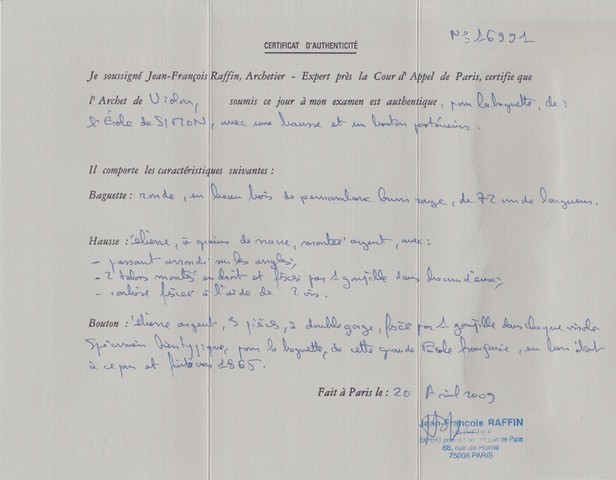 N° 16991
CERTIFICAT D'AUTHENTICITÉ
Je soussigné Jean-François Raffin, Archetier - Expert près la Cour d'Appel de Paris, certifie que
l'Archet de Violon, soumis ce jour à mon examen est authentique, pour la baguette, de :
l'École de SIMON, avec une hausse et un bouton postérieurs.
Il comporte les caractéristiques suivantes :
Baguette : ronde, en beau bois de pernambouc brun rouge, de 72 cm de longueur.
Hausse : ébène, à grains de nacre, montée argent, avec :
- passant arrondi sur les angles,
- 2 talons montés en droit et fixés par 1 goupille dans chacun d'eux,
- coulisse fixée à l'aide de 2 vis.
Bouton : ébène argent, 3 pièces, à double gorge, fixée par 1 goupille dans chaque virole.
Spécimen bien typique, pour la baguette, de cette grande École française, en bon état
à ce jour et fait vers 1865.
Fait à Paris le : 20 Avril 2009
Jean-François RAFFIN
68, rue de Rome
75008 PARIS